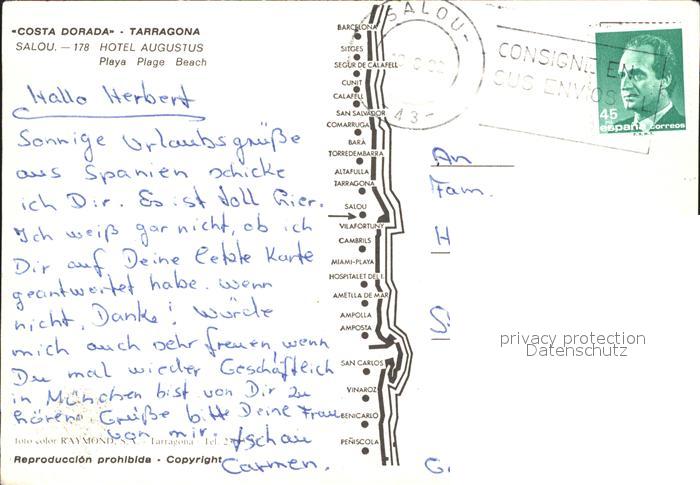 «COSTA DORADA» - TARRAGONA
SALOU. — 178 HOTEL AUGUSTUS
Playa Plage Beach
Hallo Herbert
Sonnige Urlaubsgrüße
aus Spanien schicke
ich Dir. Es ist toll hier.
Ich weiß gar nicht, ob ich
Dir auf Deine letzte Karte
geantwortet habe. Wenn
nicht, Danke! Würde
mich auch sehr freuen, wenn
Du mal wieder Geschäftlich
in München bist von Dir zu
hören. Grüße bitte Deine Frau
von mir. Tschau
Carmen.
foto color RAYMOND, S. A. - Tarragona - Tel.
Reproducción prohibida - Copyright
BARCELONA
SITGES
SEGUR DE CALAFELL
CUNIT
CALAFELL
SAN SALVADOR
COMARRUGA
BARA
TORREDEMBARRA
ALTAFULLA
TARRAGONA
SALOU
VILAFORTUNY
CAMBRILS
MIAMI-PLAYA
HOSPITALET DEL I.
AMETLLA DE MAR
AMPOLLA
AMPOSTA
SAN CARLOS
VINAROZ
BENICARLO
PEÑISCOLA
SALOU-
43
CONSIGNE EN
SUS ENVIOS
45
PTA
españa correos
An
Fam.
H
S
G.
privacy protection
Datenschutz